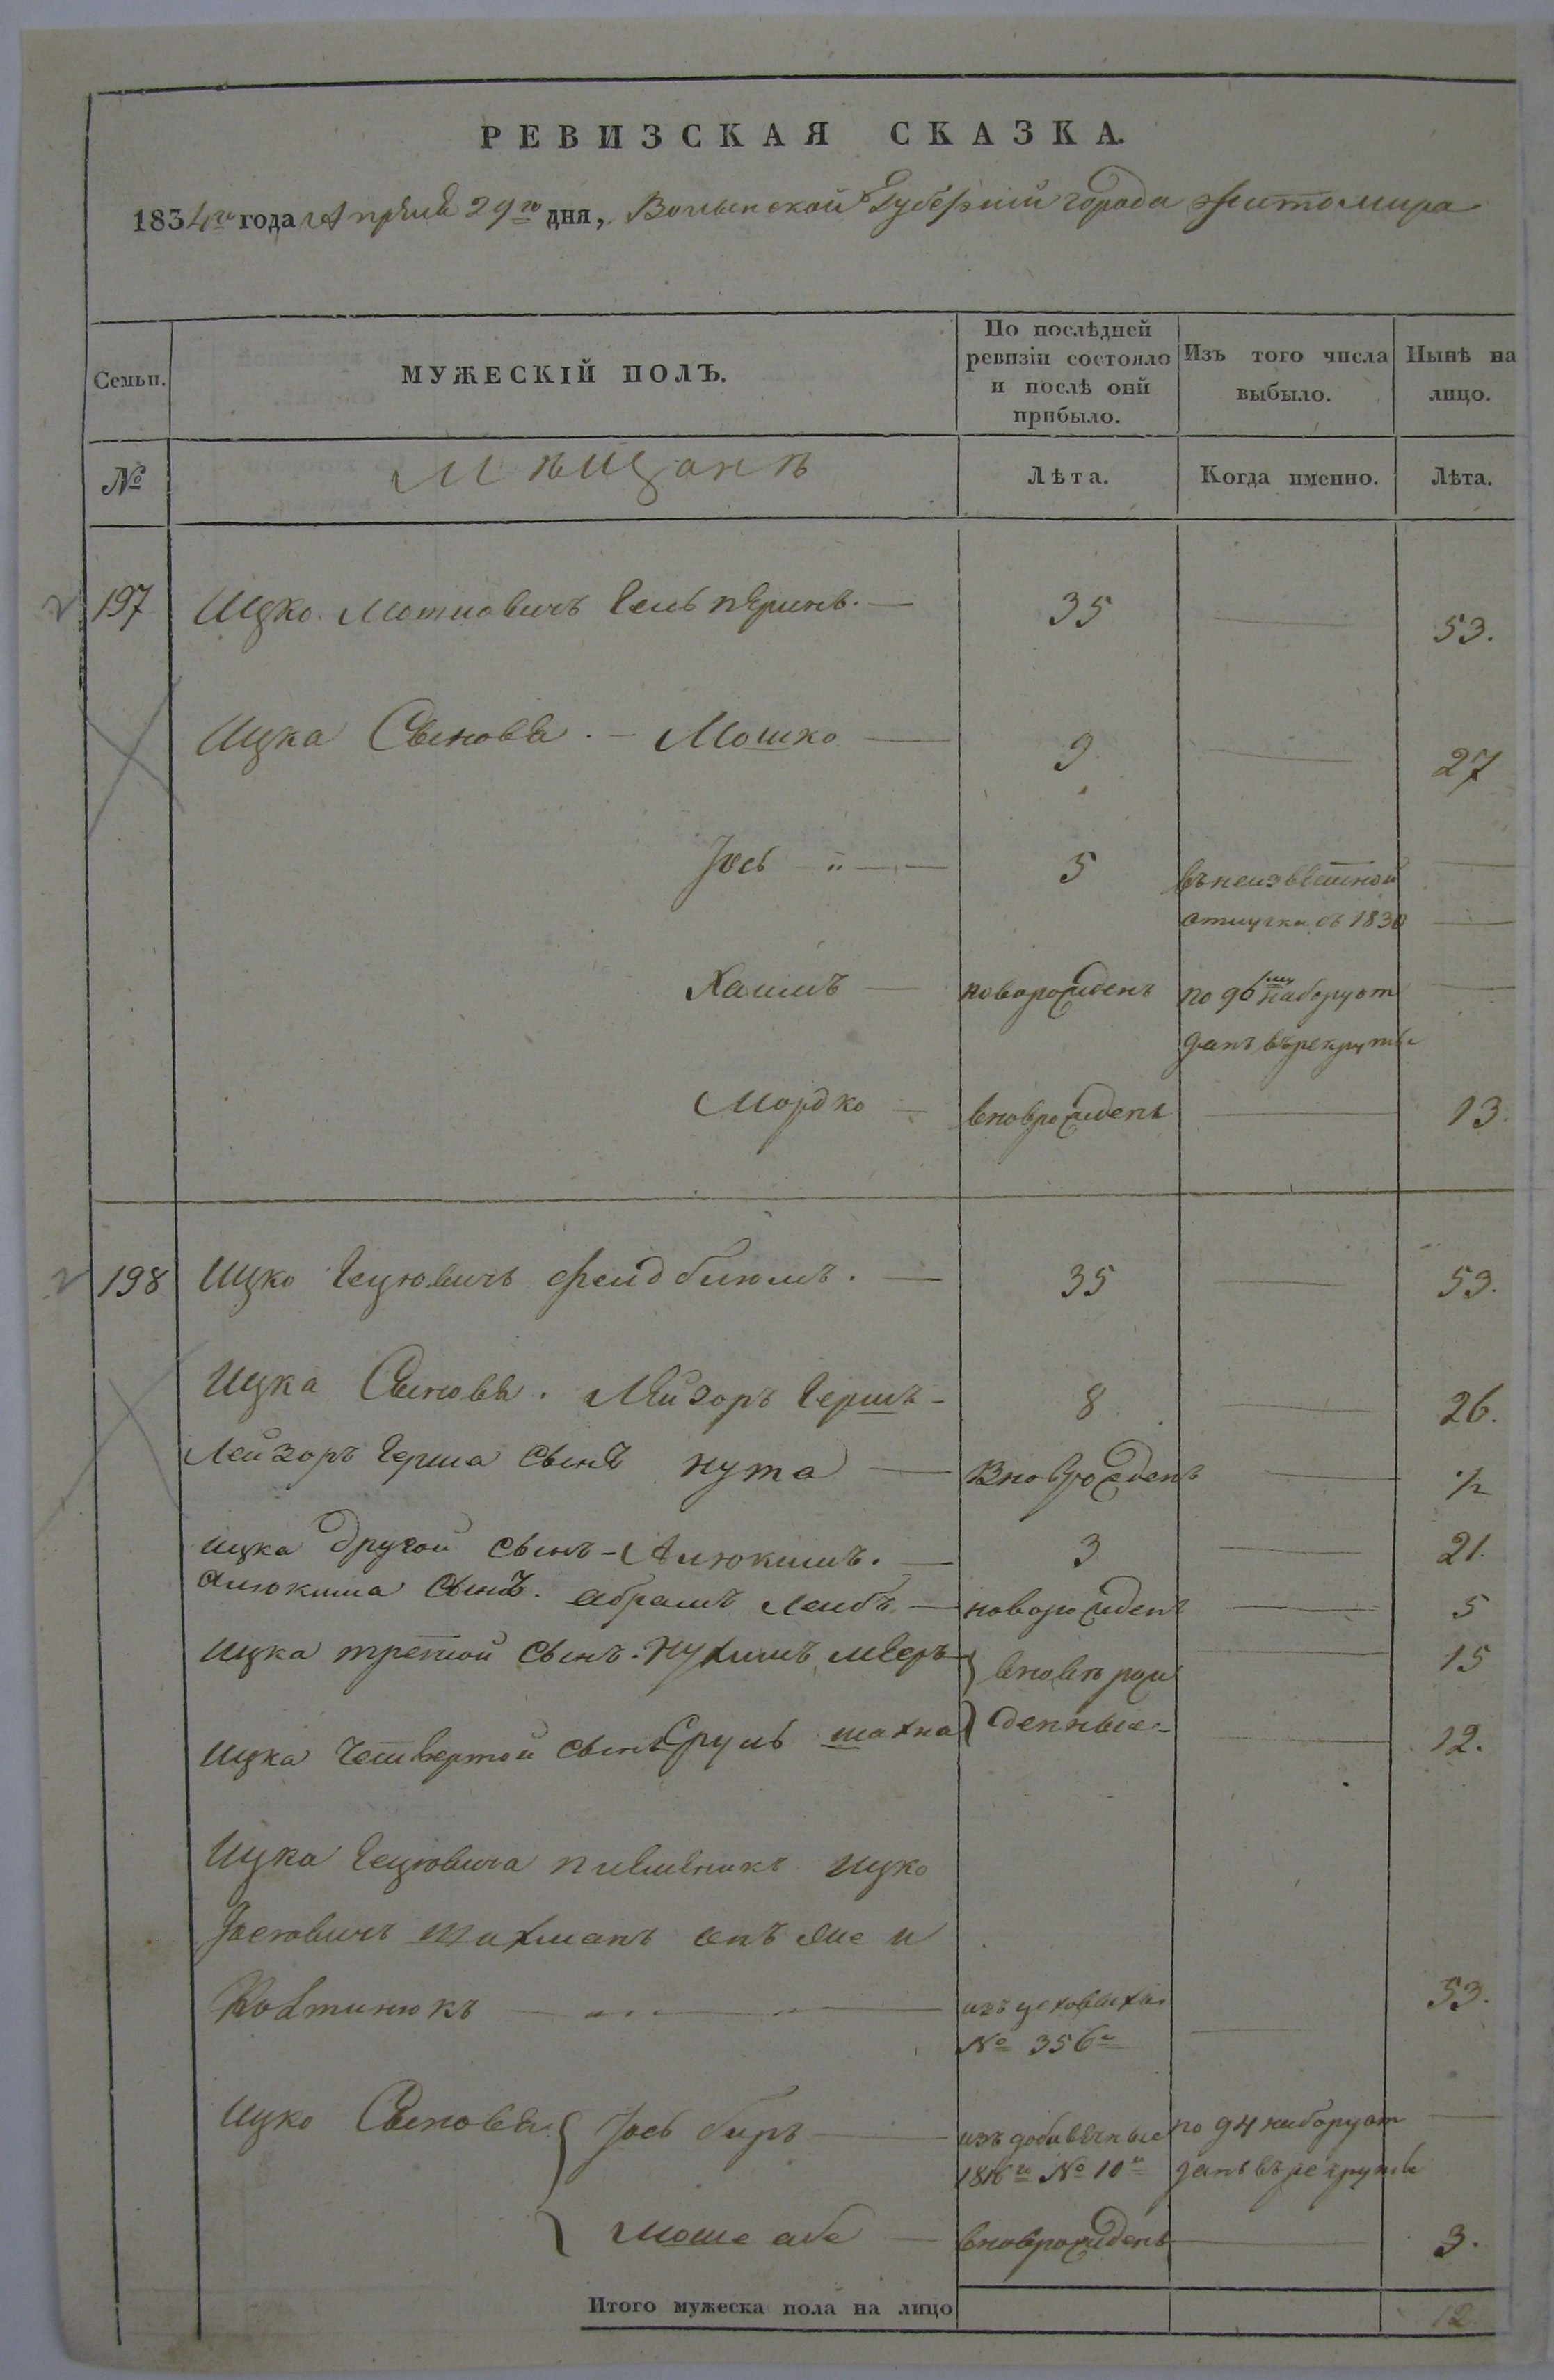 РЕВИЗСКАЯ СКАЗКА.
1834го года Апреля 29го дня, Волынской Губернии города Житомира
Семьи. МУЖЕСКІЙ ПОЛЪ. По послѣдней ревизіи состояло и послѣ оной прибыло. Изъ того числа выбыло. Нынѣ на лицо.
№ Мѣщанѣ Лѣта. Когда именно. Лѣта.
197 Ицко Мотиовичъ Гельперинъ. — 35 — 53.
Ицка Сыновья. — Мошко — 9 — 27
Іось — 5 въ неизвестной —
отлучки съ 1830 —
Хаимъ — новорожденъ по 96му набору от —
данъ въ рекруты
Мордко — вноврожденъ — 13.
198 Ицко Гецювичъ Фельдблюмъ. — 35 — 53.
Ицка Сыновья. Лейзоръ Гершъ - 8 — 26.
Лейзоръ Герша сынъ Нута — Вноврожденъ — 1/2
Ицка другой сынъ - Алюкимъ. — 3 — 21.
Алюкима сынъ. Абрамъ Леибъ — новорожденъ — 5
Ицка третой сынъ. Нухимъ Меер — } вновь рож — 15
Ицка четвертой сынъ Сруль Шахна } денные - — 12.
Ицка Гецювича племеникъ Ицко
Іосювичъ онъ же и
— изъ
№ 356й — 53.
Ицко Сыновья { Іось Беръ — изъ добавочные по 94 набору от —
1816го № 10й данъ въ рекруты
{ Моше Абе — вноврожденъ — 3.
Итого мужеска пола на лицо 12